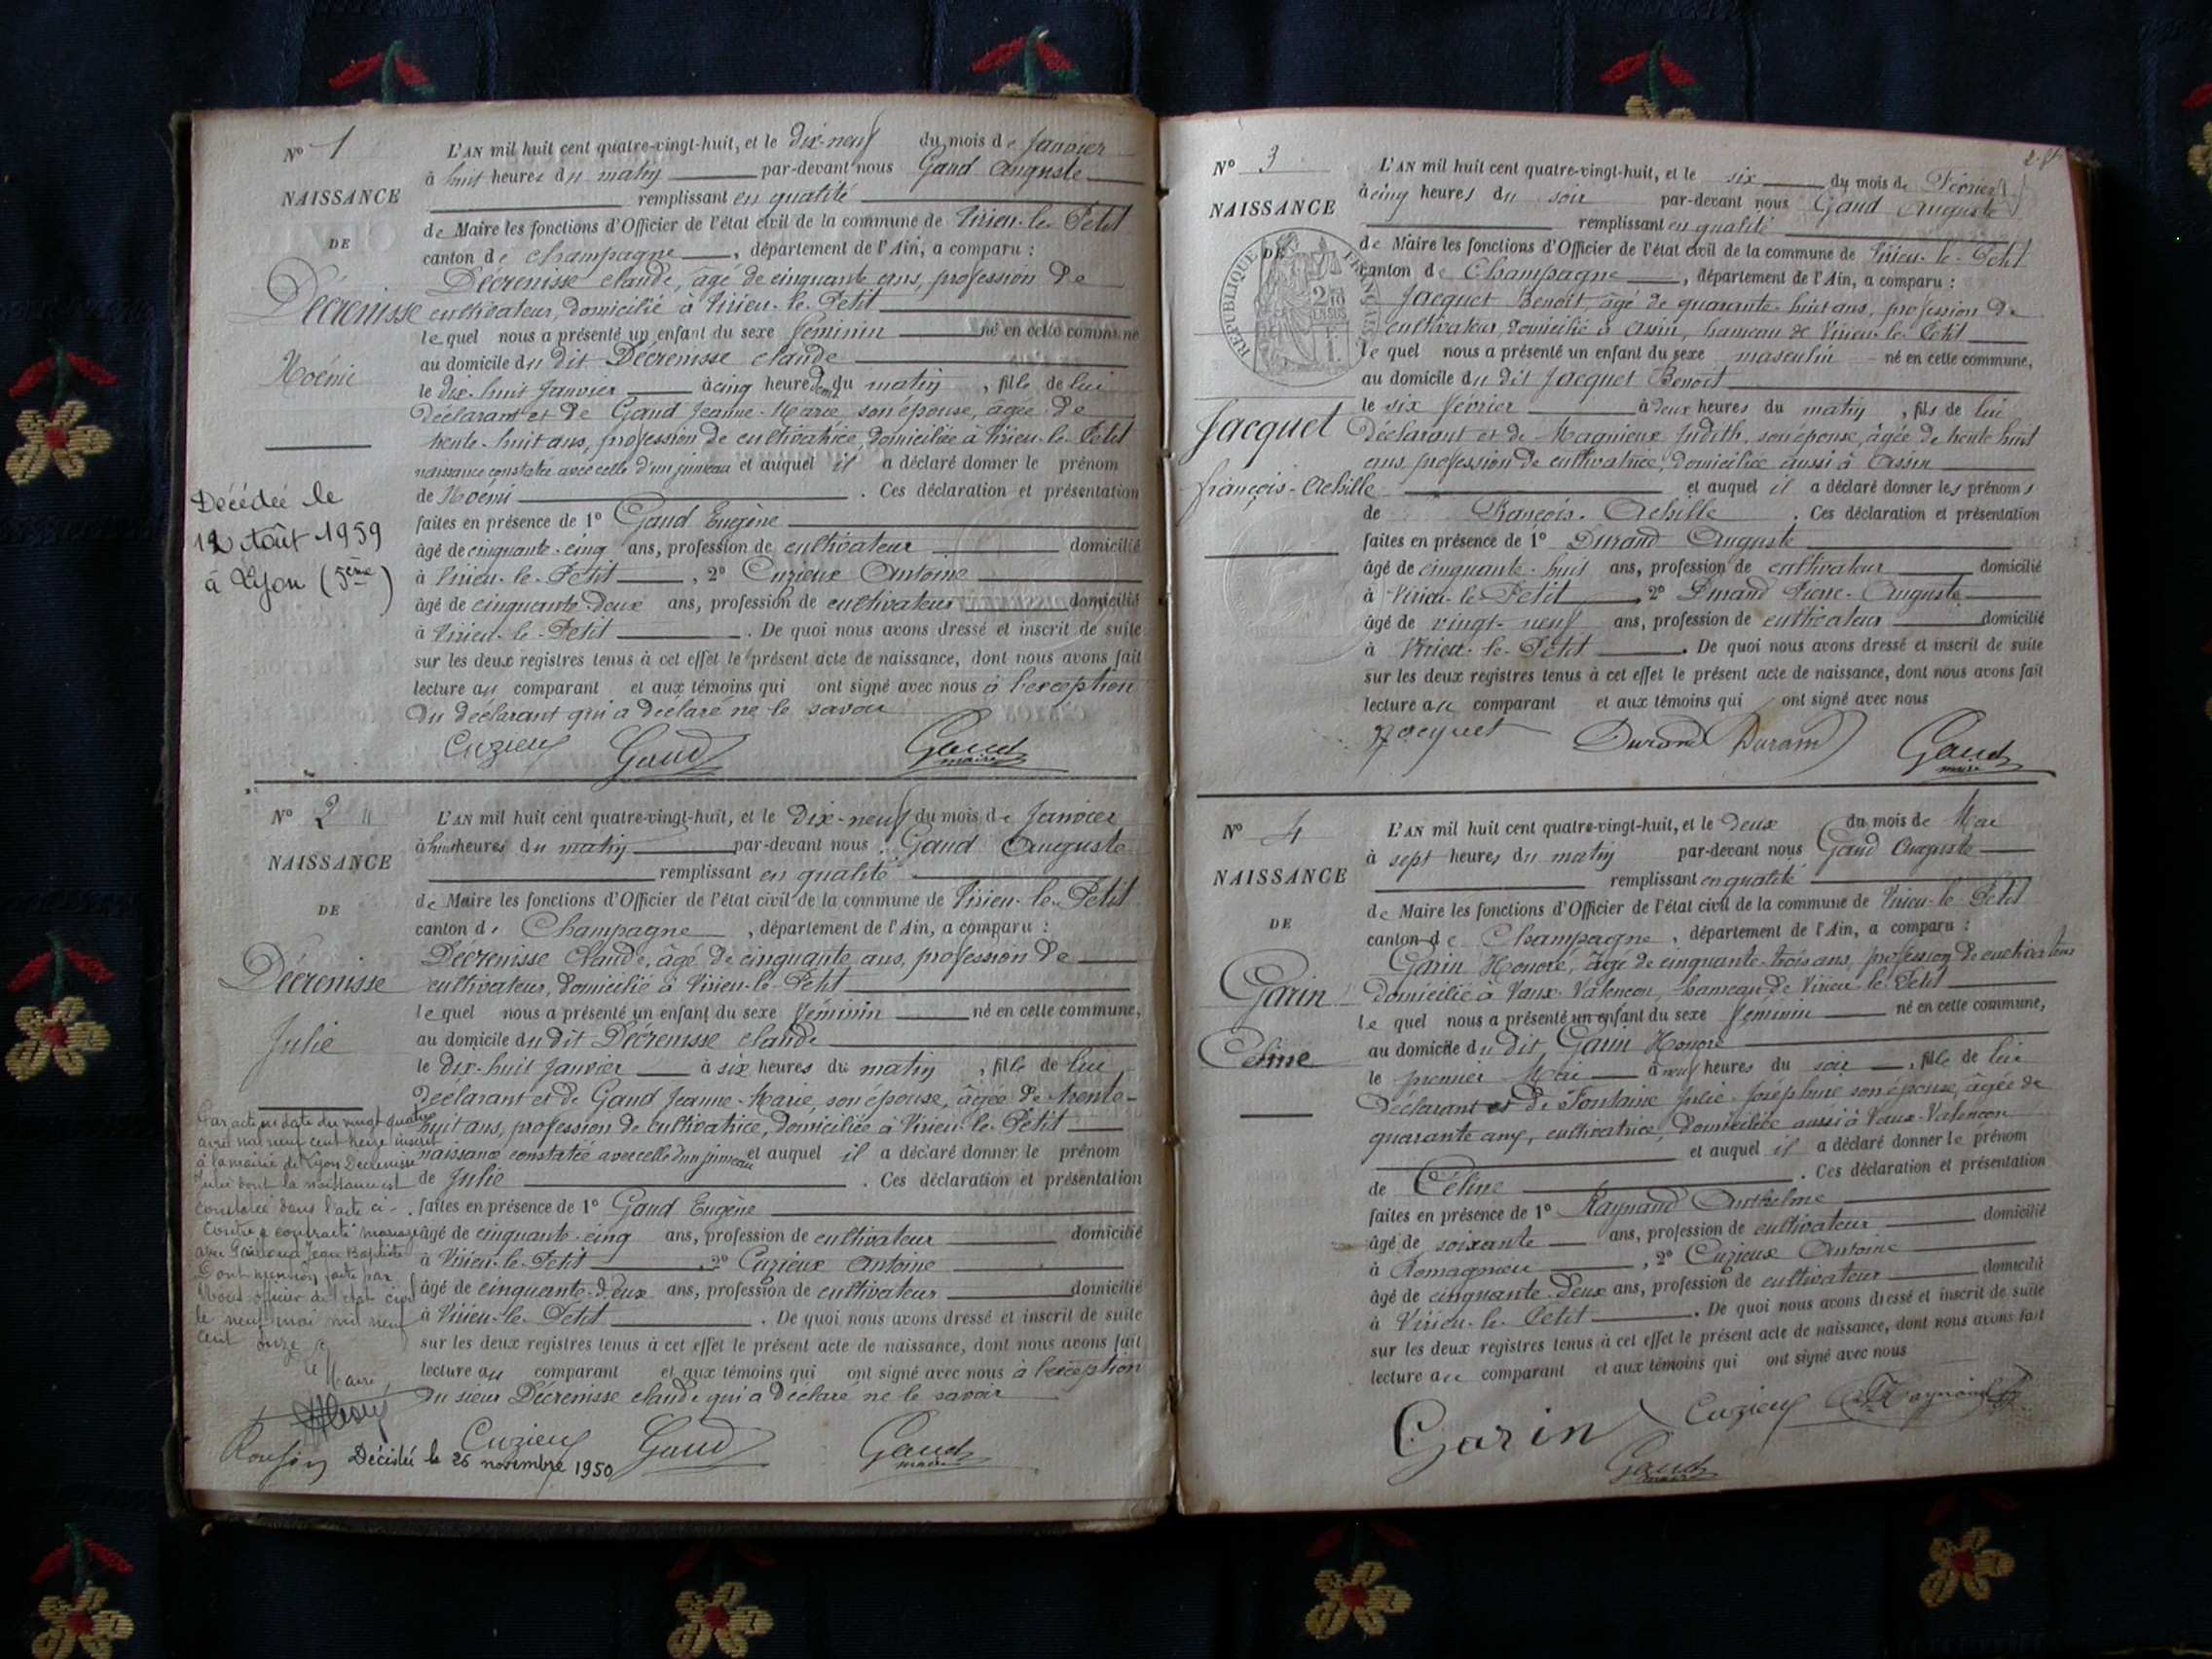 N° 1
NAISSANCE
DE
Décrenisse
Noémie
Décédée le
12 Août 1959
à Lyon (5ème)
L'AN mil huit cent quatre-vingt-huit, et le dix-neuf du mois de Janvier
à huit heures du matin par-devant nous Gaud Auguste
remplissant en qualité
de Maire les fonctions d'Officier de l'état civil de la commune de Virieu-le-Petit
canton de Champagne, département de l'Ain, a comparu :
Décrenisse Claude, âgé de cinquante ans, profession de
cultivateur, domicilié à Virieu-le-Petit
lequel nous a présenté un enfant du sexe féminin né en cette commune
au domicile du dit Décrenisse Claude
le dix-huit Janvier à cinq heures du matin, fille de lui
déclarant et de Gaud Jeanne-Marie son épouse, âgée de
trente-huit ans, profession de cultivatrice, domiciliée à Virieu-le-Petit
naissance constatée avec celle d'un jumeau et auquel il a déclaré donner le prénom
de Noémi. Ces déclaration et présentation
faites en présence de 1° Gaud Eugène
âgé de cinquante-cinq ans, profession de cultivateur domicilié
à Virieu-le-Petit, 2° Cuzieux Antoine
âgé de cinquante-deux ans, profession de cultivateur domicilié
à Virieu-le-Petit. De quoi nous avons dressé et inscrit de suite
sur les deux registres tenus à cet effet le présent acte de naissance, dont nous avons fait
lecture au comparant et aux témoins qui ont signé avec nous à l'exception
du déclarant qui a déclaré ne le savoir
Cuzieux Gaud Gaud
maire
N° 2
NAISSANCE
DE
Décrenisse
Julie
Par acte en date du vingt quatre
avril mil neuf cent inscrit
à la mairie de Lyon Décrenisse
Julie dont la naissance est
constatée dans l'acte ci-
contre a contracté mariage
avec Jean Baptiste
Dont mention faite par
Nous officier de l'état civil
le neuf mai mil neuf
cent onze
Le Maire
L'AN mil huit cent quatre-vingt-huit, et le dix-neuf du mois de Janvier
à huit heures du matin par-devant nous Gaud Auguste
remplissant en qualité
de Maire les fonctions d'Officier de l'état civil de la commune de Virieu-le-Petit
canton de Champagne, département de l'Ain, a comparu :
Décrenisse Claude, âgé de cinquante ans, profession de
cultivateur, domicilié à Virieu-le-Petit
lequel nous a présenté un enfant du sexe féminin né en cette commune,
au domicile du dit Décrenisse Claude
le dix-huit Janvier à six heures du matin, fille de lui
déclarant et de Gaud Jeanne-Marie, son épouse, âgée de trente-
huit ans, profession de cultivatrice, domiciliée à Virieu-le-Petit
naissance constatée avec celle d'un jumeau et auquel il a déclaré donner le prénom
de Julie. Ces déclaration et présentation
faites en présence de 1° Gaud Eugène
âgé de cinquante-cinq ans, profession de cultivateur domicilié
à Virieu-le-Petit, 2° Cuzieux Antoine
âgé de cinquante-deux ans, profession de cultivateur domicilié
à Virieu-le-Petit. De quoi nous avons dressé et inscrit de suite
sur les deux registres tenus à cet effet le présent acte de naissance, dont nous avons fait
lecture au comparant et aux témoins qui ont signé avec nous à l'exception
du sieur Décrenisse Claude qui a déclaré ne le savoir
Cuzieux Gaud Gaud
maire
Décédée le 26 novembre 1950
N° 3
NAISSANCE
DE
RÉPUBLIQUE FRANÇAISE
Jacquet
François-Achille
L'AN mil huit cent quatre-vingt-huit, et le six du mois de Février
à cinq heures du soir par-devant nous Gaud Auguste
remplissant en qualité
de Maire les fonctions d'Officier de l'état civil de la commune de Virieu-le-Petit
canton de Champagne, département de l'Ain, a comparu :
Jacquet Benoît âgé de quarante-huit ans, profession de
cultivateur, domicilié à Assin, hameau de Virieu-le-Petit
lequel nous a présenté un enfant du sexe masculin né en cette commune,
au domicile du dit Jacquet Benoît
le six février à deux heures du matin, fils de lui
déclarant et de Magnieux Judith, son épouse, âgée de trente huit
ans, profession de cultivatrice, domiciliée aussi à Assin
et auquel il a déclaré donner les prénoms
de François-Achille. Ces déclaration et présentation
faites en présence de 1° Durand Auguste
âgé de cinquante-huit ans, profession de cultivateur domicilié
à Virieu-le-Petit, 2° Durand Pierre-Auguste
âgé de vingt-neuf ans, profession de cultivateur domicilié
à Virieu-le-Petit. De quoi nous avons dressé et inscrit de suite
sur les deux registres tenus à cet effet le présent acte de naissance, dont nous avons fait
lecture au comparant et aux témoins qui ont signé avec nous
Jacquet Durand Durand Gaud
maire
N° 4
NAISSANCE
DE
Garin
Céline
L'AN mil huit cent quatre-vingt-huit, et le deux du mois de Mai
à sept heures du matin par-devant nous Gaud Auguste
remplissant en qualité
de Maire les fonctions d'Officier de l'état civil de la commune de Virieu-le-Petit
canton de Champagne, département de l'Ain, a comparu :
Garin Honoré, âgé de cinquante-trois ans, profession de cultivateur
domicilié à Vaux-Valencon, hameau de Virieu-le-Petit
lequel nous a présenté un enfant du sexe féminin né en cette commune,
au domicile du dit Garin Honoré
le premier Mai à neuf heures du soir, fille de lui
déclarant et de Fontaine Julie-Joséphine son épouse, âgée de
quarante ans, cultivatrice, domiciliée aussi à Vaux-Valencon
et auquel il a déclaré donner le prénom
de Céline. Ces déclaration et présentation
faites en présence de 1° Raynaud Anthelme
âgé de soixante ans, profession de cultivateur domicilié
à Romagnieu, 2° Cuzieux Antoine
âgé de cinquante-deux ans, profession de cultivateur domicilié
à Virieu-le-Petit. De quoi nous avons dressé et inscrit de suite
sur les deux registres tenus à cet effet le présent acte de naissance, dont nous avons fait
lecture au comparant et aux témoins qui ont signé avec nous
Garin Cuzieux Raynaud
Gaud
maire